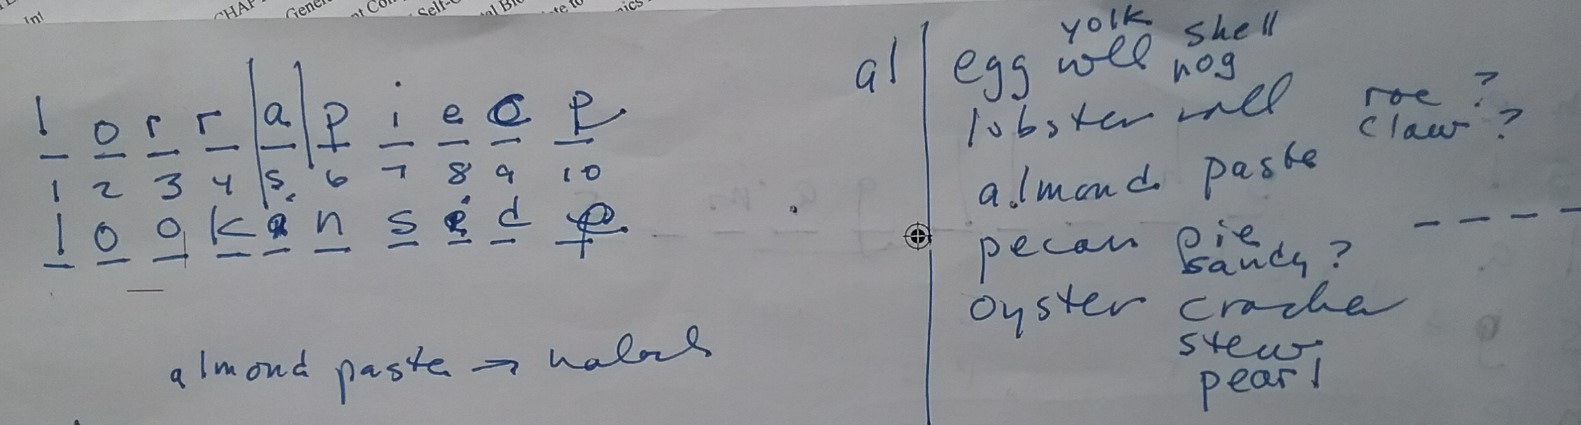 CHAP
Gener
Self-
yolk shell
al egg roll nog
l o r r a p i e c e
lobster roll roe ?
claw ?
1 2 3 4 5 6 7 8 9 10
almond paste
l o g k n s d
pecan pie
sandy ?
oyster cracker
stew
pearl
almond paste →